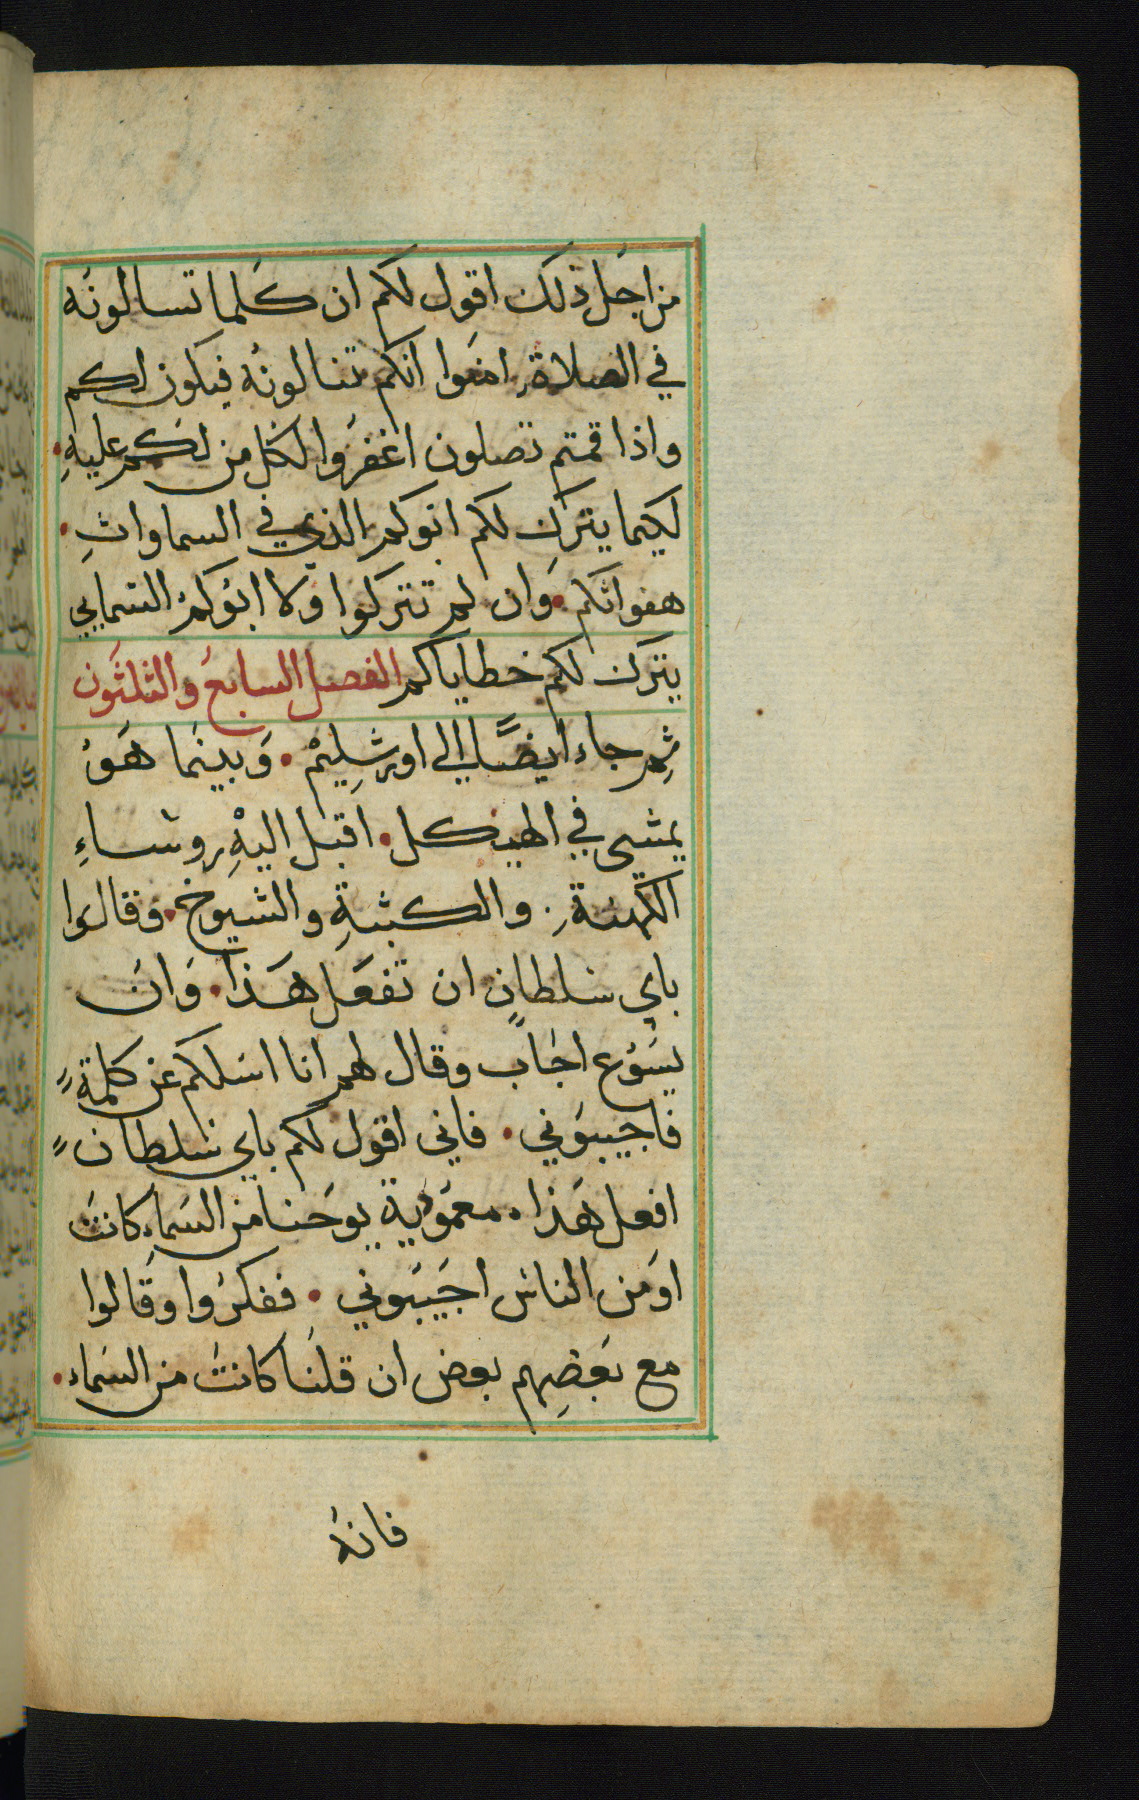 من اجل ذلك اقول لكم ان كلما تسالونه
في الصلاة امنوا انكم تنالونه فيكون لكم
واذا قمتم تصلون اغفروا لكل من لكم عليه
لكيما يترك لكم ابوكم الذي في السماوات
هفواتكم وان لم تتركوا ولا ابوكم السمايي
يترك لكم خطاياكم الفصل السابع والثلثون
ثم جاء ايضًا الي اورشليم وبينما هو
يمشي في الهيكل اقبل اليه روساء
الكهنة والكتبة والشيوخ وقالوا
باي سلطان ان تفعل هذا وان
يسوع اجاب وقال لهم انا اسلكم عن كلمة
فاجيبوني فاني اقول لكم باي سلطان
افعل هذا معمودية يوحنا من السماء كانت
او من الناس اجيبوني ففكروا وقالوا
مع بعضهم بعض ان قلنا كانت من السماء
فانه